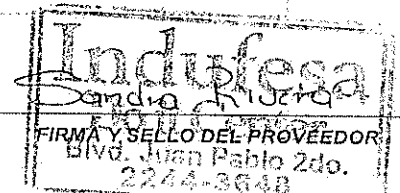 Indufesa
Sandra Rivera
FIRMA Y SELLO DEL PROVEEDOR
Blvd. Juan Pablo 2do.
2244-3648